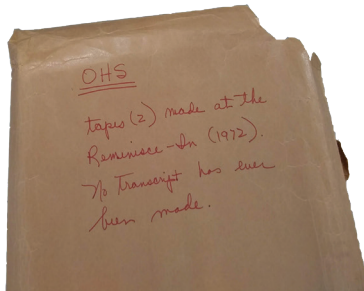 OHS
tapes (2) made at the
Reminisce-In (1972).
No Transcript has ever
been made.